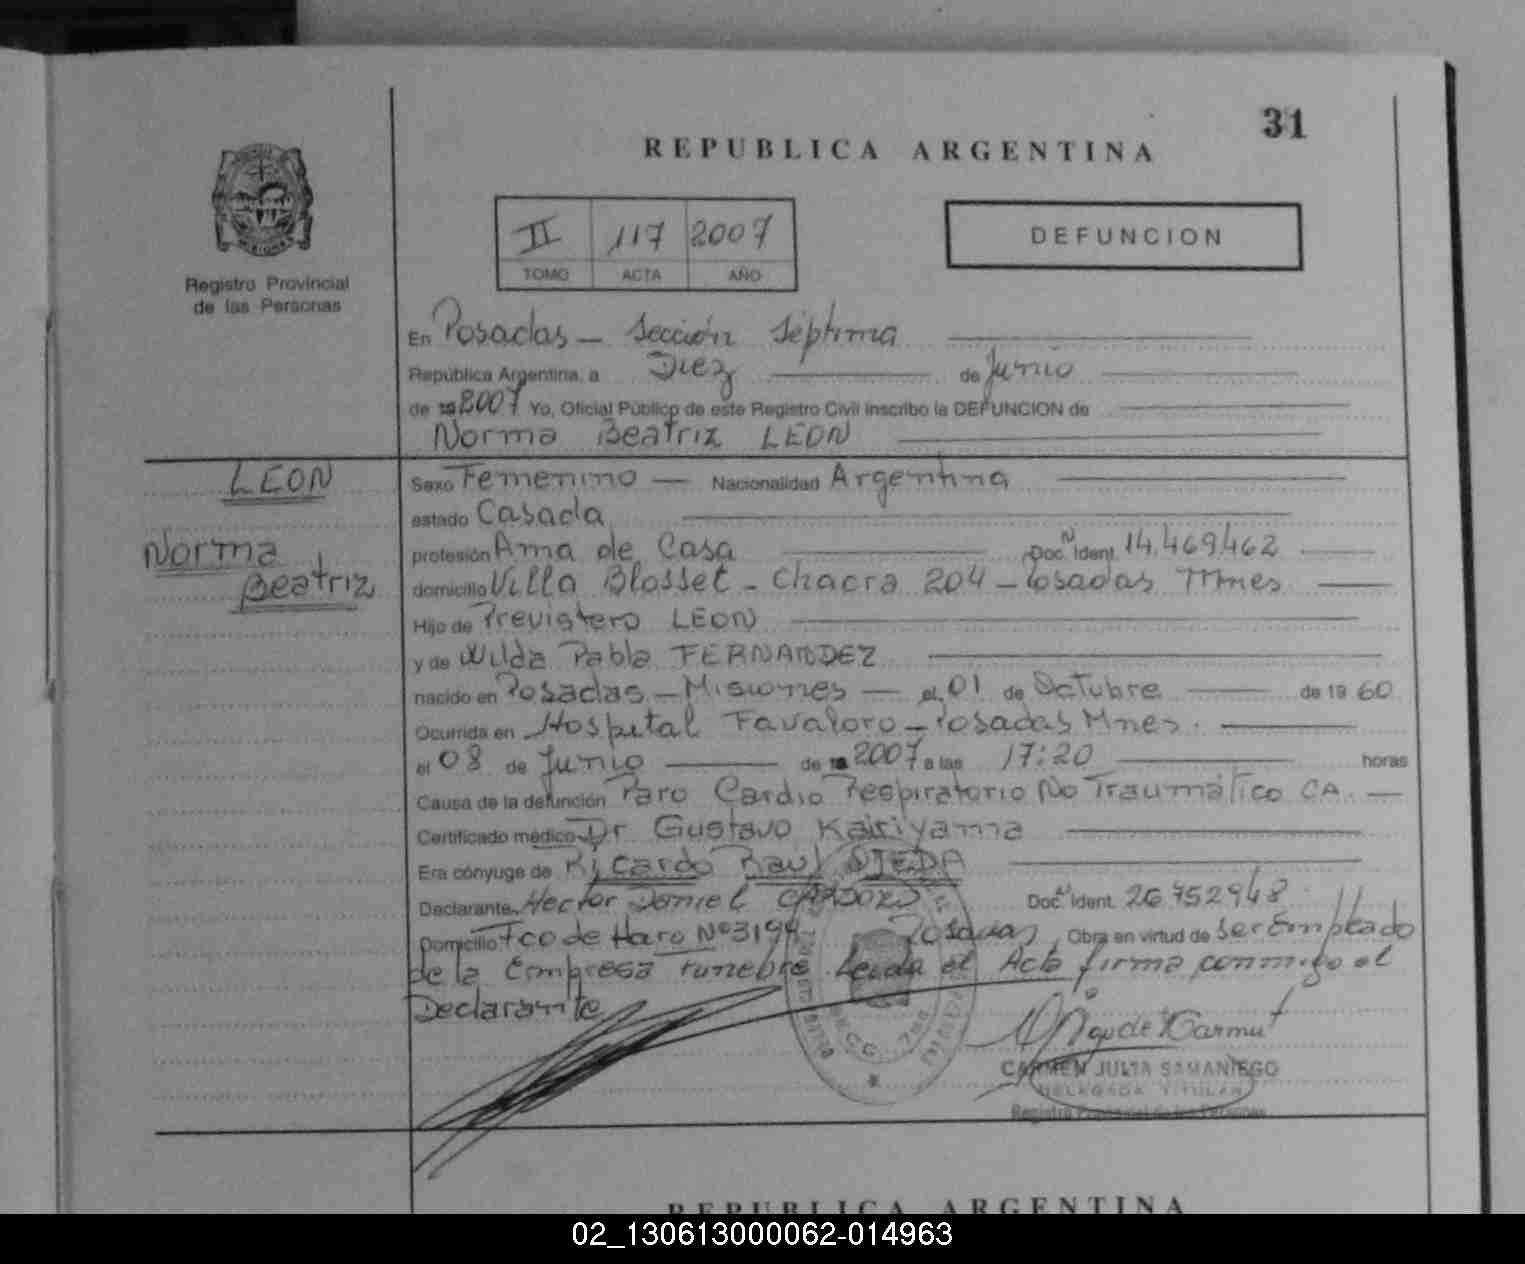 31
REPUBLICA ARGENTINA
II 117 2007
TOMO ACTA AÑO
DEFUNCION
Registro Provincial
de las Personas
En Posadas - Sección Séptima
República Argentina, a Diez de Junio
de 19 2007 Yo, Oficial Público de este Registro Civil inscribo la DEFUNCION de
Norma Beatriz LEON
LEON
Norma
Beatriz
Sexo Femenino - Nacionalidad Argentina
estado Casada
profesión Ama de Casa Doc. N Ident. 14.469.462
domicilio Villa Blosset - Chacra 204 - Posadas Mnes
Hijo de Previstero LEON
y de Wilda Pabla FERNANDEZ
nacido en Posadas - Misiones - el 01 de Octubre de 19 60
Ocurrida en Hospital Favaloro - Posadas Mnes.
el 08 de Junio de 19 2007 a las 17:20 horas
Causa de la defunción Paro Cardio Respiratorio No Traumático CA.
Certificado médico Dr Gustavo Kairiyama
Era cónyuge de Ricardo Raul OJEDA
Declarante Hector Daniel CARDOZO Doc. N Ident. 26.752948
Domicilio Fco de Haro Nº 3194 Posadas Obra en virtud de ser Empleado
de la Empresa Funebre. Leida el Acta firma conmigo el
Declarante
CARMEN JULIA SAMANIEGO
DELEGADA TITULAR
Registro Provincial de las Personas
REPUBLICA ARGENTINA
02_130613000062-014963